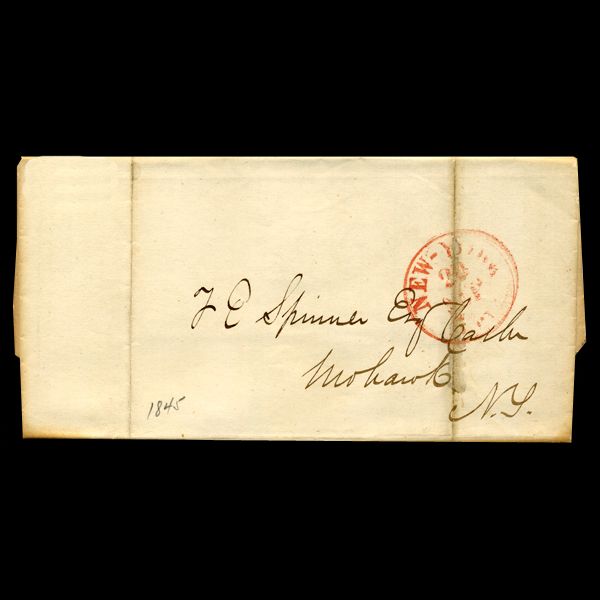 NEW-YORK
20
F E Spinner Esq Cashr
Mohawk
N.Y.
1845